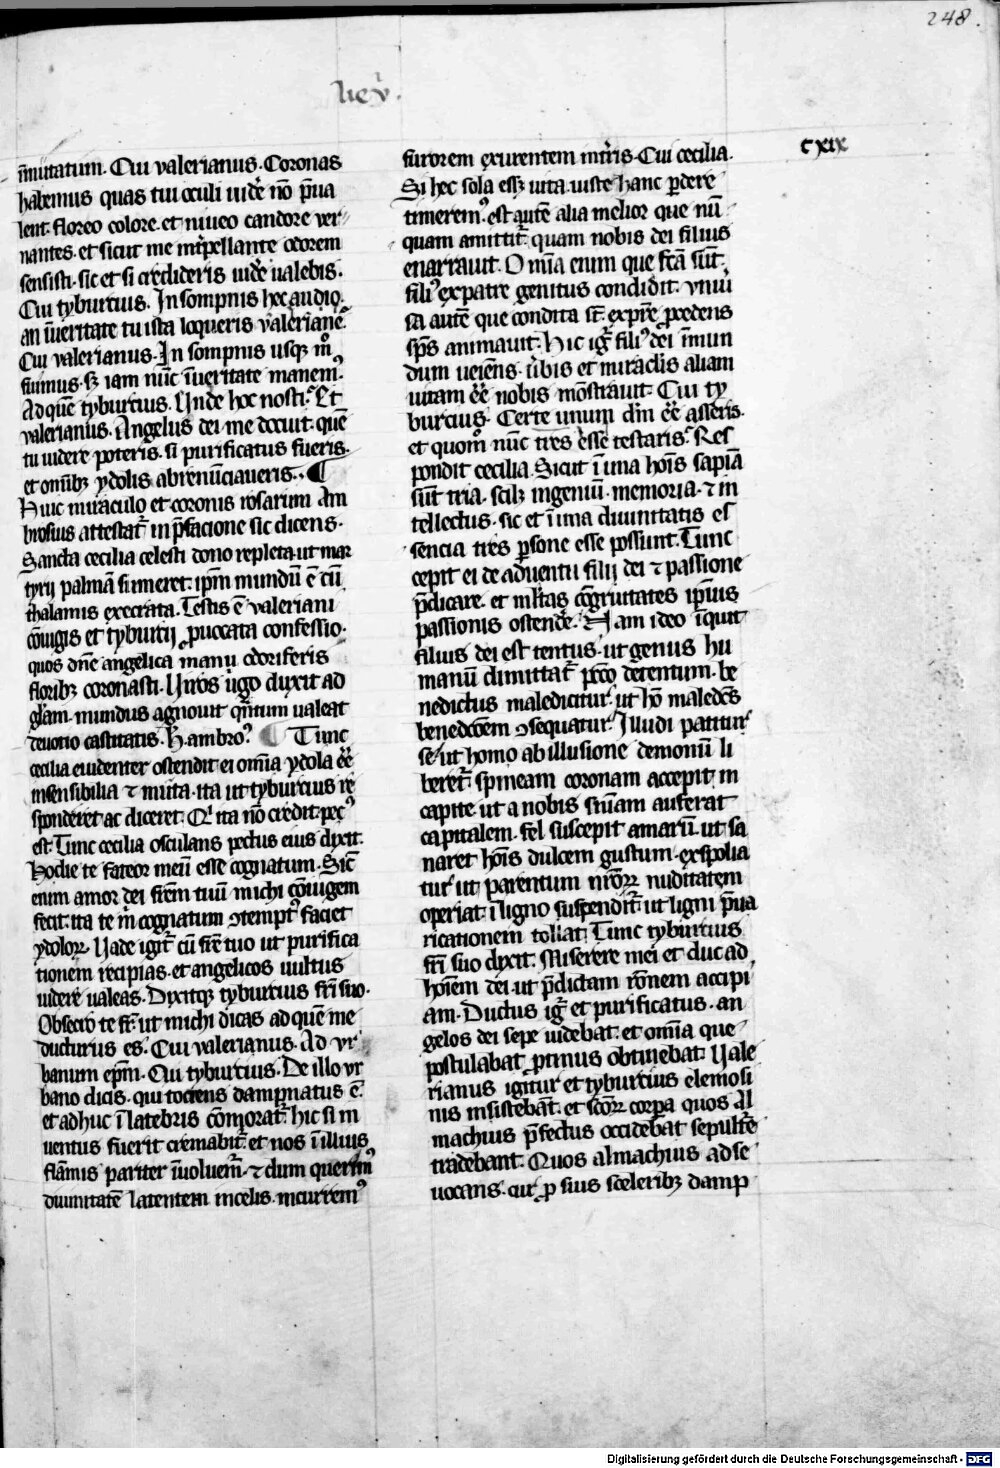 248.
lie v̾.
c xix
īmutatum. Cui valerianus. Coronas
habemus quas tui oculi uidēr nō p̄ua
lent. floreo colore. et niueo candore ver
nantes. et sicut me īt̄pellante odorem
sensisti. sic et si credideris uidēr ualebis.
Cui tyburcius. In sompnis hec audio.
an īueritate tu ista loqueris valeriane.
Cui valerianus. In sompnis usqꝫ m̊
fuimus. sꝫ iam nūc īueritate manemꝰ.
Ad quē tyburtius. Unde hoc nosti. Et
valerianus. Angelus dei me docuit. quē
tu uidere poteris. si purificatus fueris.
et om̄ibꝫ ydolis abrenūciaueris. ¶
Huic miraculo et coronis rosarum Am
brosius attestat̄ in p̄facione sic dicens.
Sancta cecilia celesti dono repleta. ut mar
tyrij palmā sumeret. ip̄m mundū ē cū
thalamis execrata. Testis ē valeriani
cōiugis et tyburtij ꝓuocata confessio.
quos dn̄e angelica manu odoriferis
floribꝫ coronasti. Uiros uigo duxit ad
gl̄am. mundus agnouit qn̄tum ualeat
deuotio castitatis. H. ambroꝰ. ¶ Tunc
cecilia euidenter ostendit ei om̄ia ydola ēē
insensibilia ⁊ muta. ita ut tyburcius re
sponderet ac diceret. Qͥ ita nō credit. pecꝰ
est. Tunc cecilia osculans pectus eius dixit.
Hodie te fateor meū esse cognatum. Sic̄
enim amor dei fr̄em tuū michi cōiugem
fecit. ita te m̄ cognatum ꝯtemptꝰ faciet
ydoloꝝ. Uade igit̄ cū fr̄e tuo ut purifica
tionem recipias. et angelicos uultus
uidere ualeas. Dixitqꝫ tyburtius fr̄i suo.
Obsecro te fr̄. ut michi dicas ad quē me
ducturus es. Cui valerianus. Ad vr
banum ep̄m. Cui tyburtius. De illo vr
bano dicis. qui tociens dampnatus ē.
et adhuc ī latebris cōmorat̄. hic si in
uentus fuerit cremabit̄. et nos ī illius
flāmis pariter īuoluem̄. ⁊ dum querimꝰ
diuinitatē latentem in celis. incurremꝰ
furorem exurentem īt̄ris. Cui cecilia.
Si hec sola essꝫ uita. iuste hanc ꝑdere
timeremꝰ. est autē alia melior que nū
quam amittit̄. quam nobis dei filius
enarrauit. Om̄ia enim que fc̄a sūt.
filiꝰ ex patre genitus condidit. vniu
sa autē que condita sūt. ex pr̄e ꝓcedens
sp̄s animauit. Hic igr̄ filiꝰ dei ī mun
dum ueiens. ūbis et miracl̄is aliam
uitam ēē nobis mōstrauit. Cui ty
burcius. Certe unum dm̄ ēē asseris.
et quom̊ nūc tres ēsse testaris. Res
pondit cecilia. Sicut ī una hoīs sapīa
sūt tria. scilꝫ ingeniū. memoria. ⁊ in
tellectus. sic et ī una diuinitatis es
sencia tres ꝑsone esse possunt. Tunc
cepit ei de aduentu filij dei ⁊ passione
p̄dicare. et ml̄tas cōgruitates ip̄ius
passionis ostendēr. Nam ideo īquit
filius dei est tentus. ut genus hu
manū dimittat̄ pcc̄o detentum. be
nedictus maledicitur. ut hō maledc̄s
benedcōem ꝯsequatur. Illudi patitur
se. ut homo ab illusione demonū li
beret̄. spineam coronam accepit in
capite. ut a nobis sn̄iam auferat
capitalem. fel suscepit amarū. ut sa
naret hoīs dulcem gustum. exspolia
tur. ut parentum nr̄oꝝ nuditatem
operiat. ī ligno suspendit̄. ut ligni p̄ua
ricationem tollat. Tunc tyburtius
fr̄i suo dixit. Miserere mei et duc ad
hoīem dei. ut p̄dictam rōnem accipi
am. Ductus igr̄ et purificatus. an
gelos dei sepe uidebat. et om̄ia que
postulabat ꝓtinus obtinebat. Uale
rianus igitur et tyburtius elemosi
nis insistebāt. et sc̄oꝝ corpa quos al
machius p̄fectus occidebat sepultēr
tradebant. Quos almachius ad se
uocans. cur ꝓ suis sceleribꝫ damp
Digitalisierung gefördert durch die Deutsche Forschungsgemeinschaft - DFG